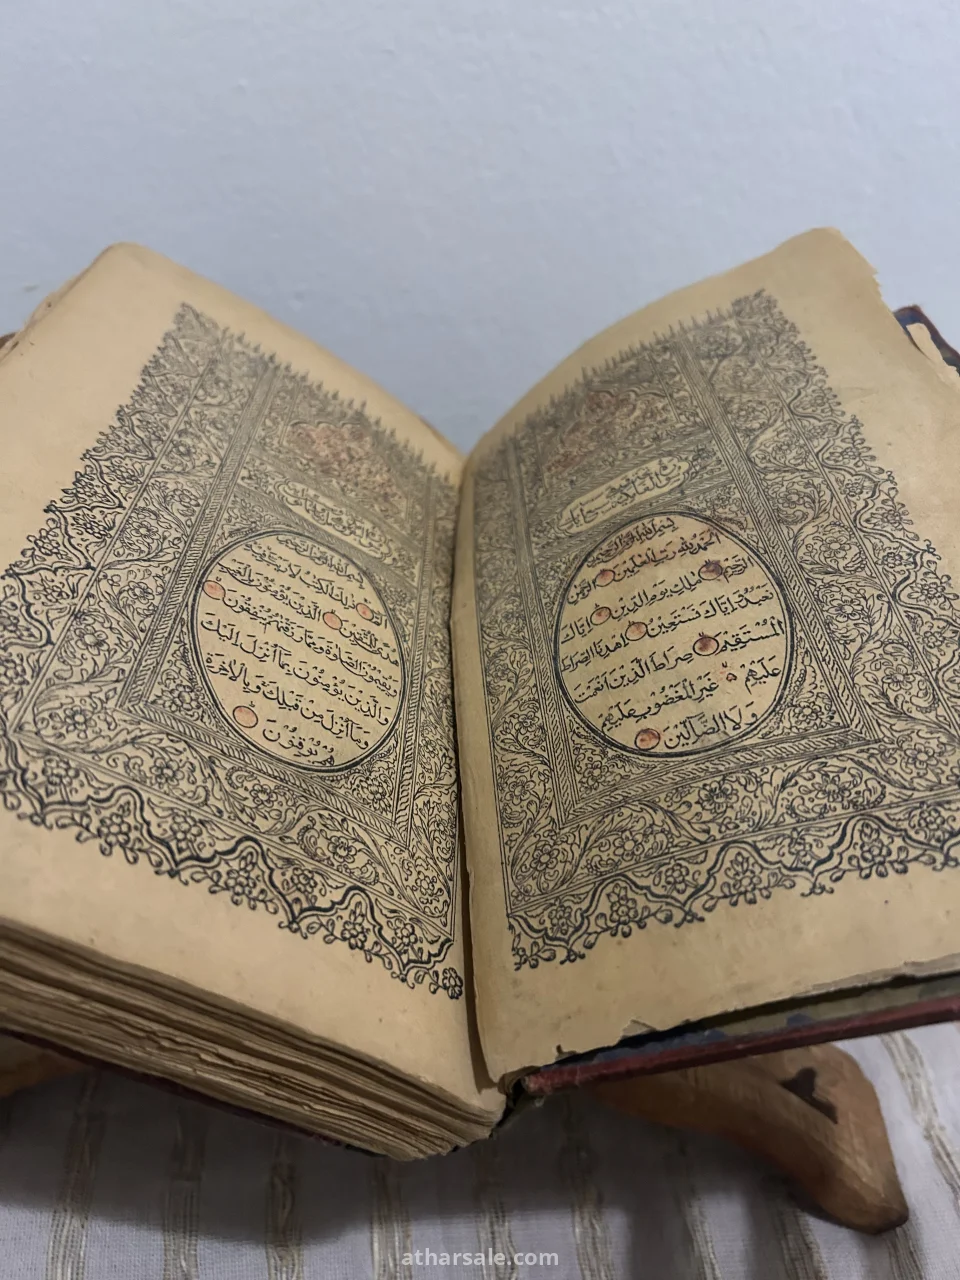 بسم الله الرحمن الرحيم
الحمد لله رب العلمين الرحمن
الرحيم ملك يوم الدين اياك
نعبد واياك نستعين اهدنا الصراط
المستقيم صراط الذين انعمت
عليهم غير المغضوب عليهم
ولا الضالين
بسم الله الرحمن الرحيم
الم ذلك الكتب لا ريب فيه
هدى للمتقين الذين يؤمنون بالغيب
ويقيمون الصلوة ومما رزقنهم ينفقون
والذين يؤمنون بما أنزل اليك
وما أنزل من قبلك وبالاخرة
هم يوقنون
atharsale.com